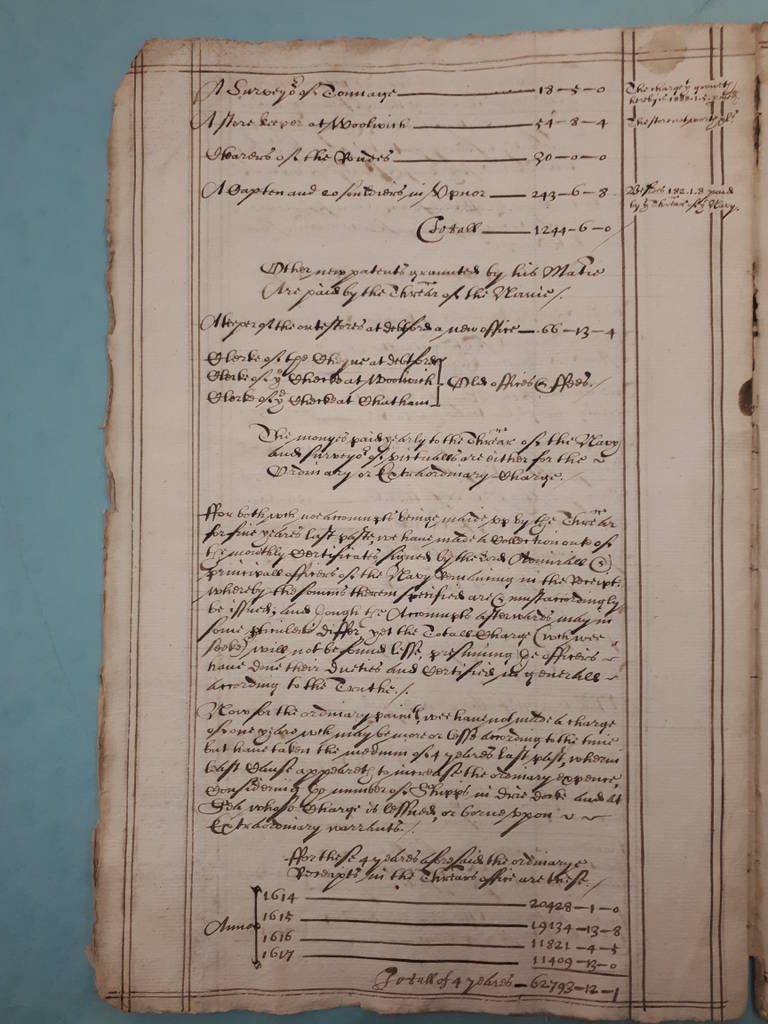 A Surveyor of Tonnage 18-5-0
The charge growth
hereby is
A store keeper at Woolwich 54-8-4
The store not worth
Clearers of the Roades 30-0-0
A Capten and 20 souldiers in Upnor 243-6-8
Besides 182.1.8 paid
by ye Threār of ye Navy.
Totall 1244-6-0
Other new patents graunted by his Matie
Are paid by the Threār of the Navie /.
A keeper of the outestores at debtford a new office 66-13-4
Clerke of the Cheque at debtford
Clerke of ye Checke at Woolwich
Clerke of ye Checke at Chatham
Old offices & ffees. /
The monyes paid yearly to the Threār of the Navy
and Surveyor of victualls are either for the
Ordinary or Extraordinary Charge.
ffor both wch no accompts beinge made up by the Threār
for five yeares last paste, we have made a Collection oute of
the monthly Certificates signed by the Lord Admirall &
principall officers of the Navy Remaining in the Receipt,
whereby the somes therein specified are & must accordingly
be issued, and though the Accompts afterwards may in
some differ, yet the Totall Charge (wch wee
seeke) will not be found lesse, presuming ye officers
have done their Dueties and Certified in generall
according to the Truthe. /.
Now for the ordinary wee have not made a charge
of one yeare wch may be more or lesse according to the time
but have taken the medium of 4 yeares last past, wherin
Last Cause appeareth to increase the ordinary expence,
Considering ye number of Shipps in drie docke and at
Sea, whose Charge is lessned, or borne upon
Extraordinary warrants. /.
ffor these 4 yeares aforesaid the ordinarye
Receipts in the Threārs office are these. /
Anno
1614 20428-1-0
1615 19134-13-8
1616 11821-4-5
1617 11409-13-0
Totall of 4 yeares 62793-12-1